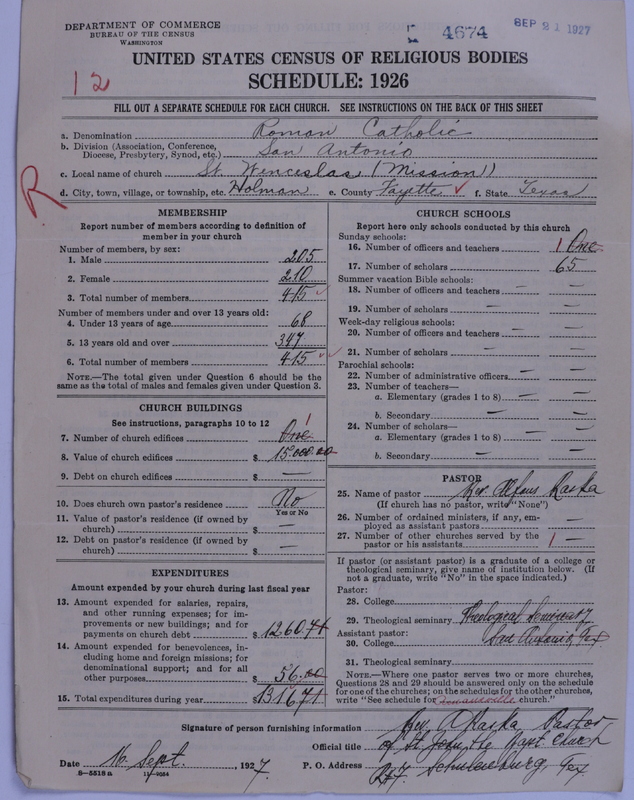 DEPARTMENT OF COMMERCE
BUREAU OF THE CENSUS
WASHINGTON
4674
SEP 21 1927
UNITED STATES CENSUS OF RELIGIOUS BODIES
SCHEDULE: 1926
12
FILL OUT A SEPARATE SCHEDULE FOR EACH CHURCH. SEE INSTRUCTIONS ON THE BACK OF THIS SHEET
a. Denomination Roman Catholic
b. Division (Association, Conference,
Diocese, Presbytery, Synod, etc.) San Antonio
c. Local name of church St Wenceslas (Mission)
d. City, town, village, or township, etc. Holman e. County Fayette f. State Texas
R
MEMBERSHIP
Report number of members according to definition of
member in your church
Number of members, by sex:
1. Male 205
2. Female 210
3. Total number of members 415
Number of members under and over 13 years old:
4. Under 13 years of age 68
5. 13 years old and over 347
6. Total number of members 415
NOTE.—The total given under Question 6 should be
same as the total of males and females given under Question 3.
CHURCH BUILDINGS
See instructions, paragraphs 10 to 12
7. Number of church edifices One 1
8. Value of church edifices $ 15,000.00
9. Debt on church edifices $ —
10. Does church own pastor's residence? No
Yes or No
11. Value of pastor's residence (if owned by
church) $ —
12. Debt on pastor's residence (if owned by
church) $ —
EXPENDITURES
Amount expended by your church during last fiscal year
13. Amount expended for salaries, repairs,
and other running expenses; for im-
provements or new buildings; and for
payments on church debt $ 1260.71
14. Amount expended for benevolences, in-
cluding home and foreign missions; for
denominational support; and for all
other purposes $ 56.00
15. Total expenditures during year $ 1316.71
CHURCH SCHOOLS
Report here only schools conducted by this church
Sunday schools:
16. Number of officers and teachers 1 One
17. Number of scholars 65
Summer vacation Bible schools:
18. Number of officers and teachers —
19. Number of scholars —
Week-day religious schools:
20. Number of officers and teachers —
21. Number of scholars —
Parochial schools:
22. Number of administrative officers —
23. Number of teachers—
a. Elementary (grades 1 to 8) —
b. Secondary —
24. Number of scholars—
a. Elementary (grades 1 to 8) —
b. Secondary —
PASTOR
25. Name of pastor Rev. Alfons Raska
(If church has no pastor, write "None")
26. Number of ordained ministers, if any, em-
ployed as assistant pastors —
27. Number of other churches served by the
pastor or his assistants 1 —
If pastor (or assistant pastor) is a graduate of a college or
theological seminary, give name of institution below. (If
not a graduate, write "No" in the space indicated.)
Pastor:
28. College
29. Theological seminary Theological Seminary
Assistant pastor: San Antonio, Tex
30. College
31. Theological seminary
NOTE.—Where one pastor serves two or more churches,
Questions 28 and 29 should be answered only on the schedule
for one of the churches; on the schedules for the other churches,
write "See schedule for church."
Signature of person furnishing information Rev. A Raska Pastor
Official title of St John the Bapt. Church
Date 16 Sept., 1927 P. O. Address Schulenburg, Tex
8—5518 a 11—9034